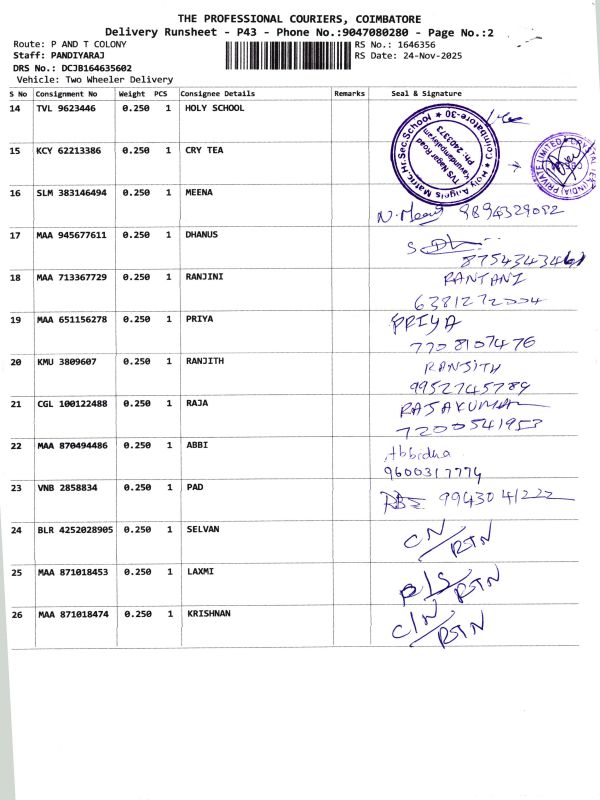 THE PROFESSIONAL COURIERS, COIMBATORE
Delivery Runsheet - P43 - Phone No.:9047080280 - Page No.:2
Route: P AND T COLONY
RS No.: 1646356
Staff: PANDIYARAJ
RS Date: 24-Nov-2025
DRS No.: DCJB164635602
Vehicle: Two Wheeler Delivery
S No Consignment No Weight PCS Consignee Details Remarks Seal & Signature
14 TVL 9623446 0.250 1 HOLY SCHOOL
Holy Angel's Matric.Hr.Sec.School
Coimbatore-30
TVS Nagar Road
Kavundampalayam
Ph: 2403373
15 KCY 62213386 0.250 1 CRY TEA
(INDIA) PRIVATE LIMITED
16 SLM 383146494 0.250 1 MEENA
N. Meena 9894329092
17 MAA 945677611 0.250 1 DHANUS
18 MAA 713367729 0.250 1 RANJINI
RANJANI
6381272004
19 MAA 651156278 0.250 1 PRIYA
PRIYA
7708107476
20 KMU 3809607 0.250 1 RANJITH
RANJITH
9952745789
21 CGL 100122488 0.250 1 RAJA
RAJAKUMAR
7200541953
22 MAA 870494486 0.250 1 ABBI
Abbidha
9600317774
23 VNB 2858834 0.250 1 PAD
9943041222
24 BLR 4252028905 0.250 1 SELVAN
CN/RTN
25 MAA 871018453 0.250 1 LAXMI
P/S RTN
26 MAA 871018474 0.250 1 KRISHNAN
C/N/RTN